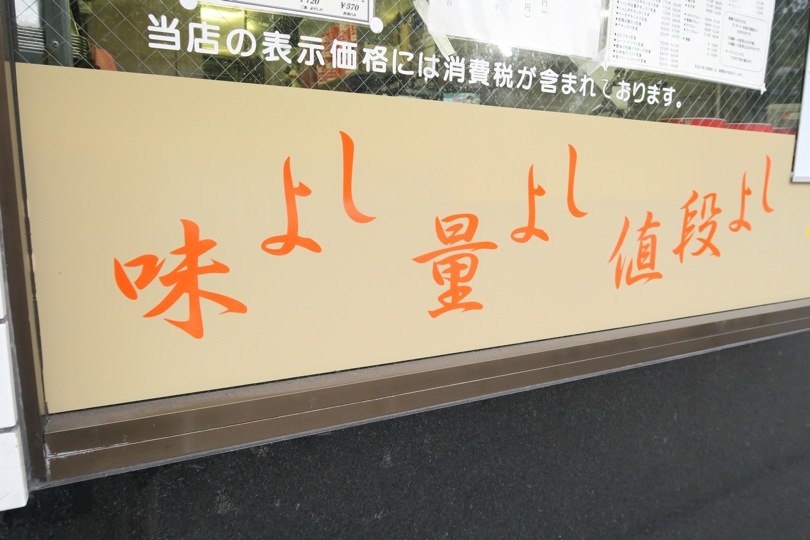 ¥120
¥570
当店の表示価格には消費税が含まれております。
味よし 量よし 値段よし